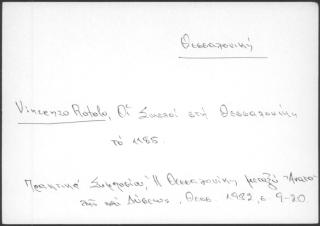 Θεσσαλονίκη
Vincenzo Rotolo, Οἱ Σικελοί στή Θεσσαλονίκη
τό 1185.
Πρακτικά Συμποσίου, Ἡ Θεσσαλονίκη μεταξύ Ἀνατο-
λῆς καί Δύσεως, Θεσ. 1982, σ. 9-20